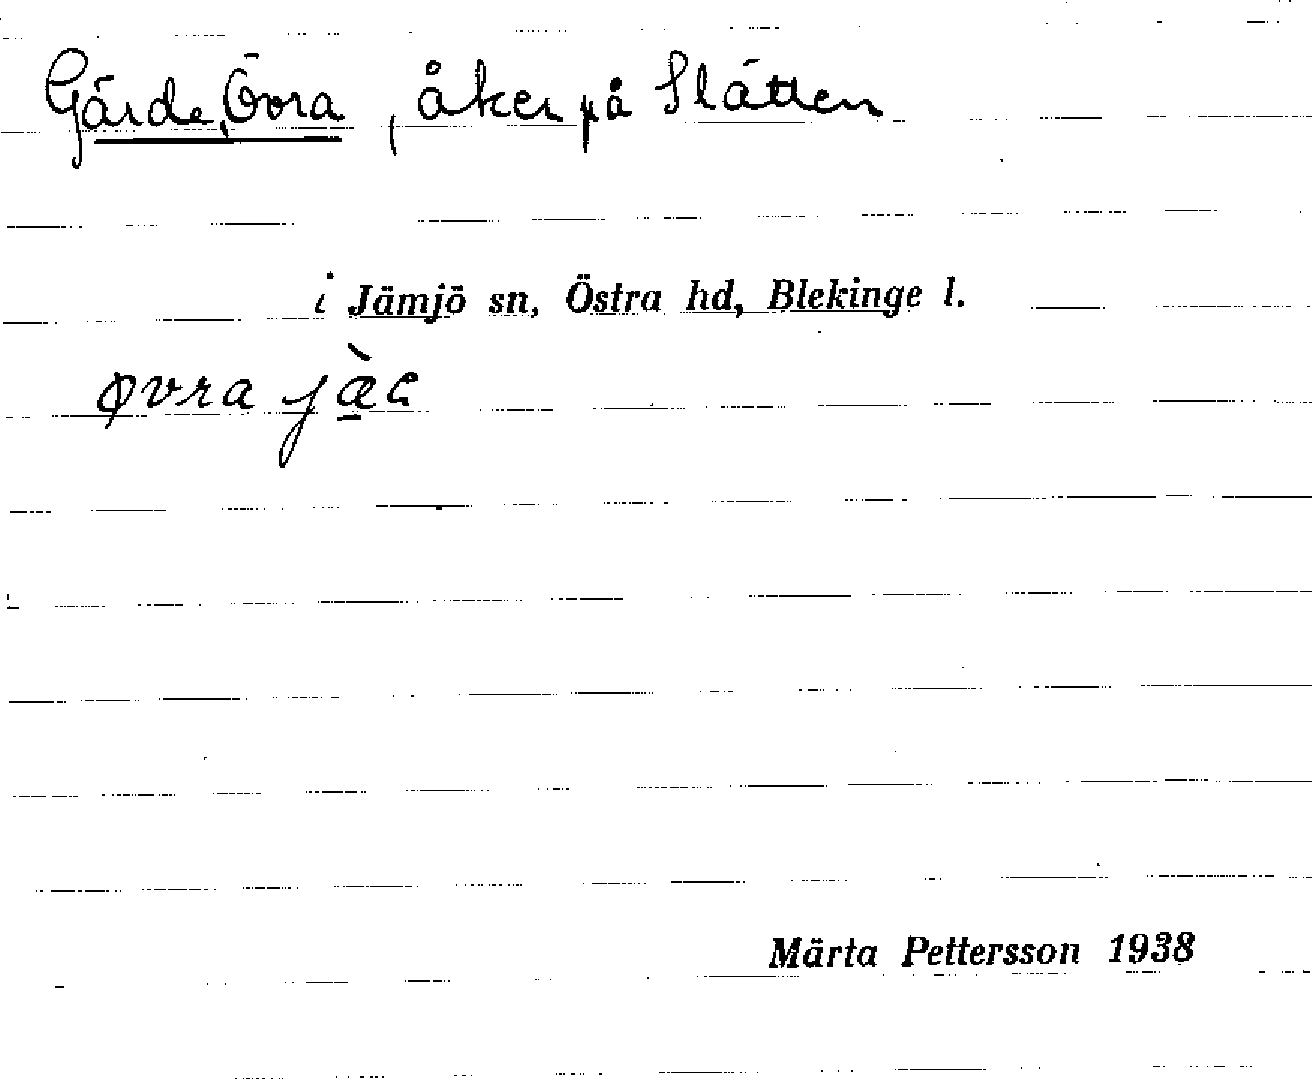 Gärde, Övra, åker på Slätten
i Jämjö sn, Östra hd, Blekinge l.
øvra jæ̠̀ə
Märta Pettersson 1938